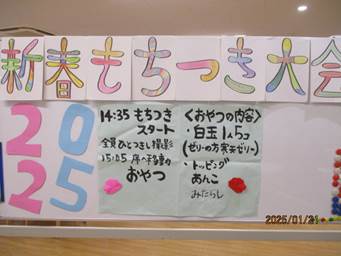 新春もちつき大会
2025
14:35 もちつき
スタート
全員ひとつきし撮影
15:05 席へ移動
おやつ
<おやつの内容>
・白玉1人5コ
(ゼリーの方寒天ゼリー)
・トッピング
あんこ
みたらし
2025/01/21